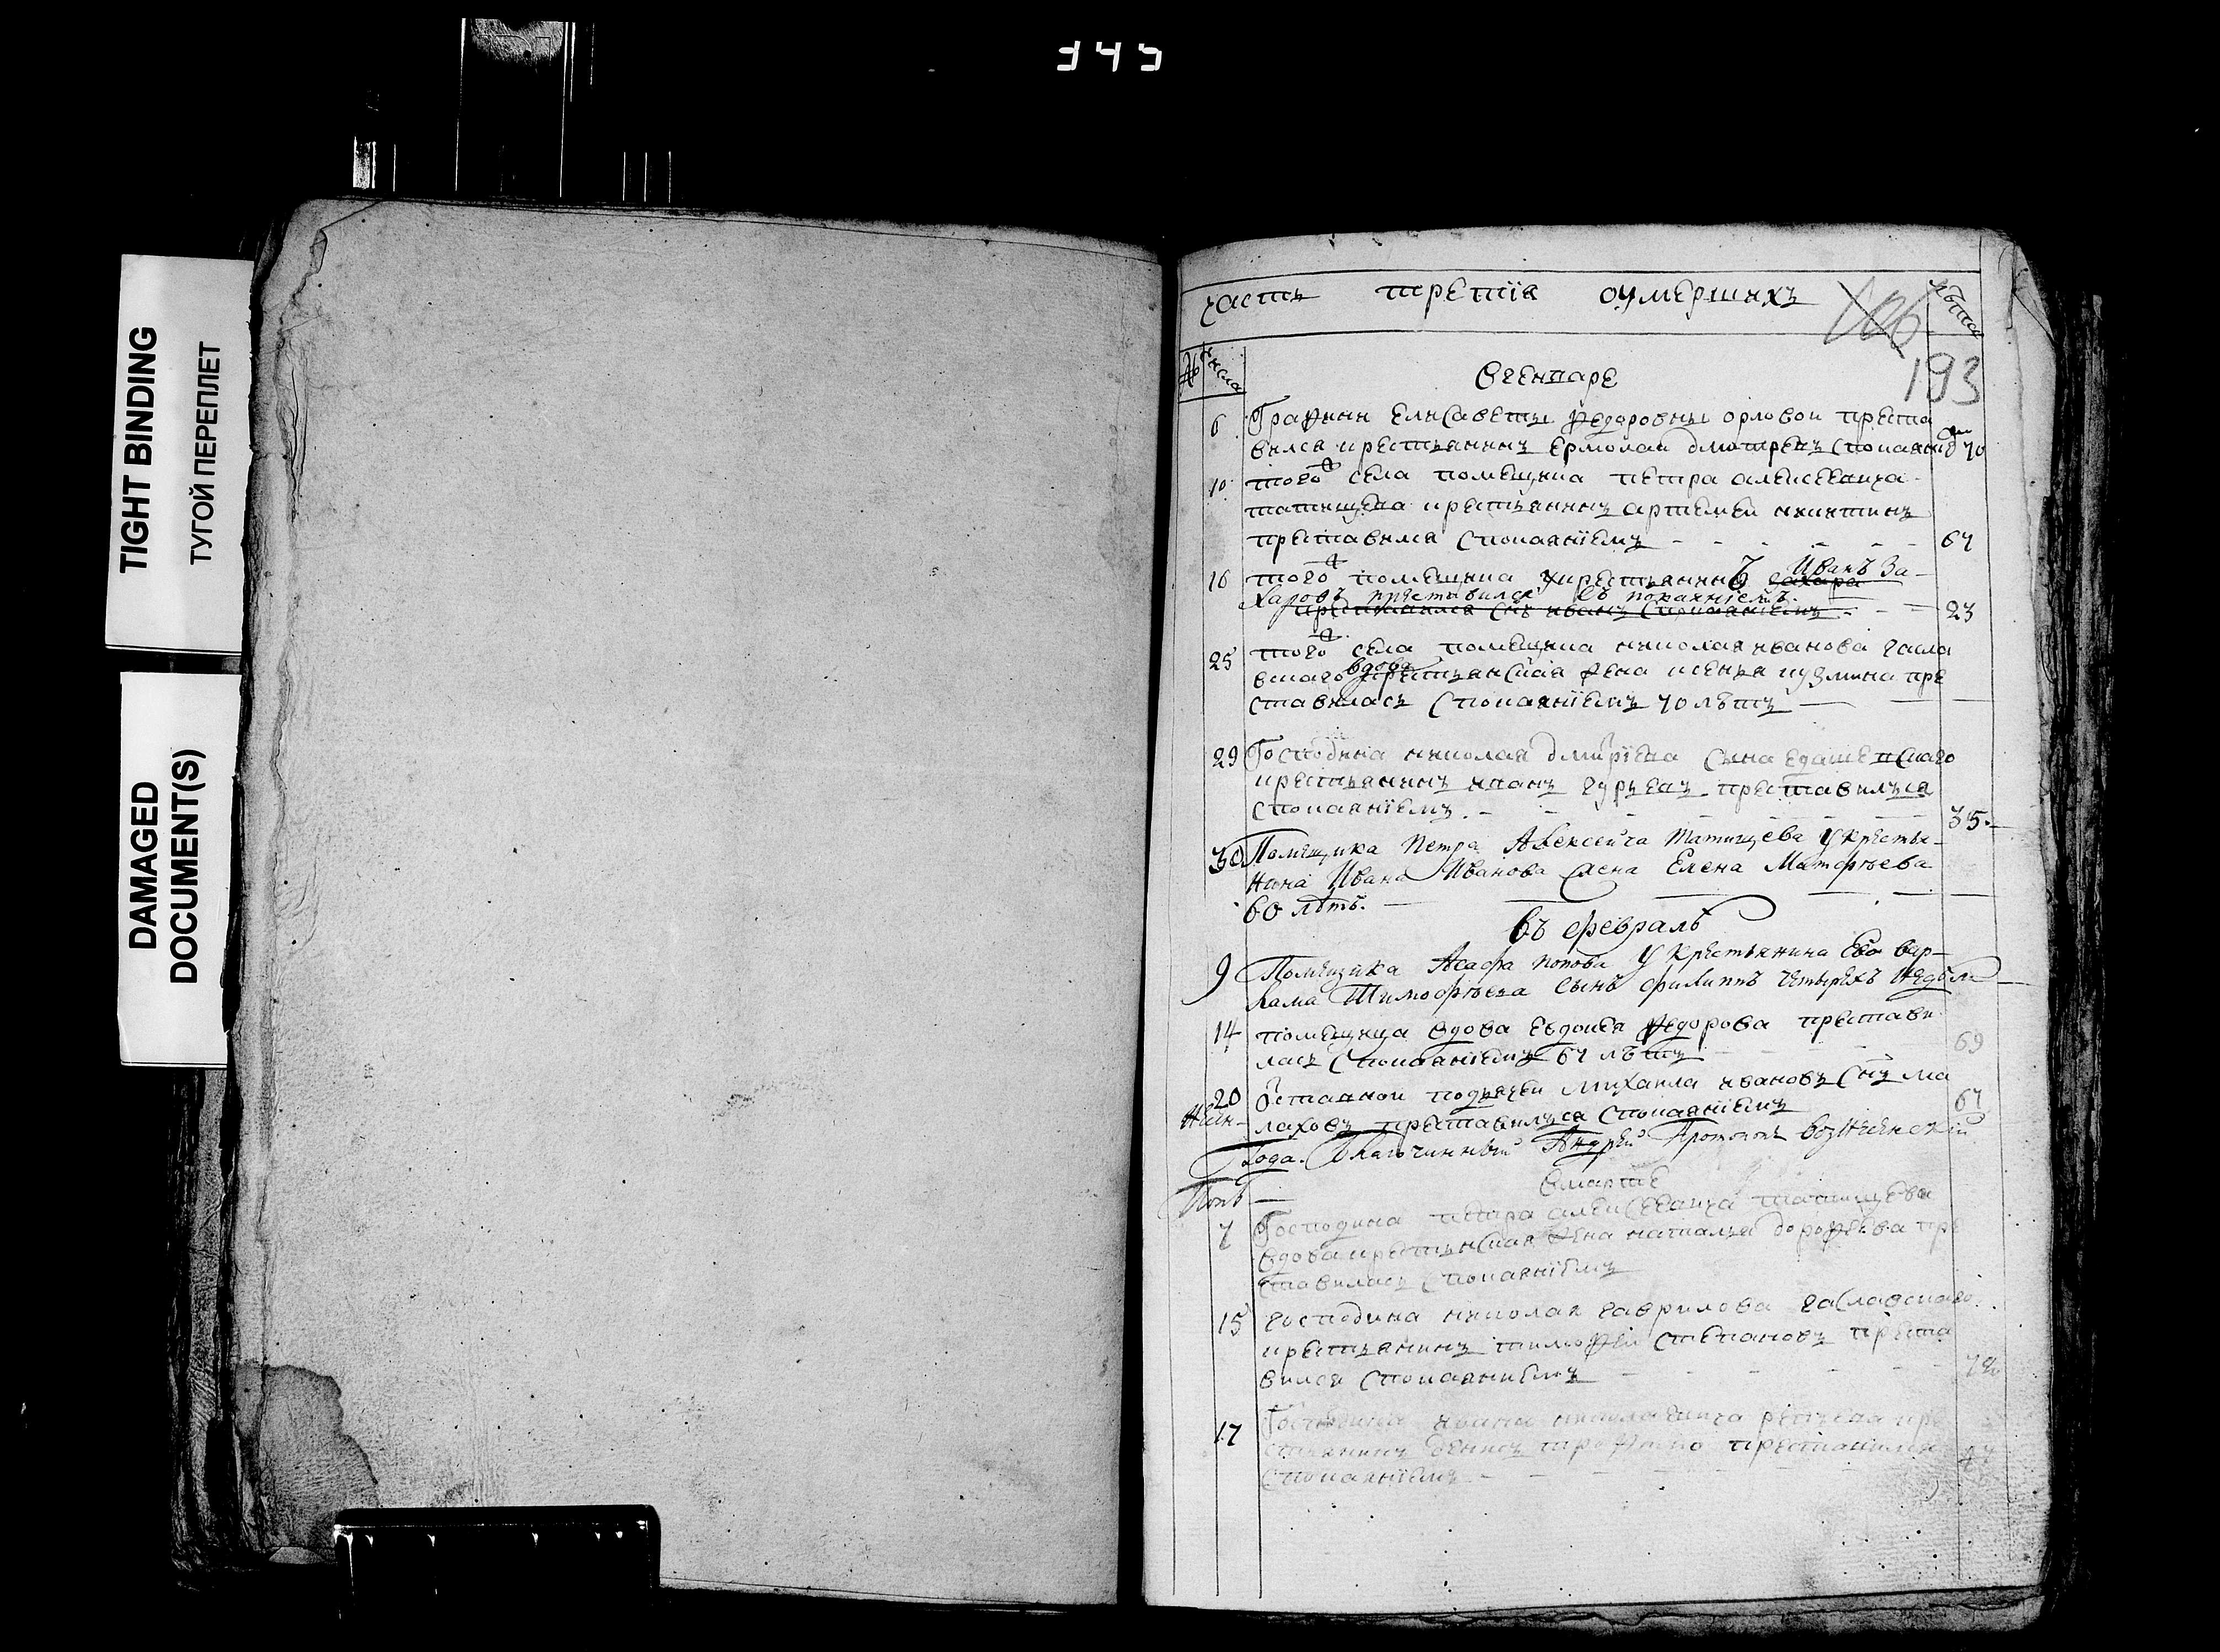 345
TIGHT BINDING
ТУГОЙ ПЕРЕПЛЕТ
DAMAGED
DOCUMENT(S)
часть третія оумершихъ
лѣта
193
№ числа
Вгенваре
6 Графини Елисаветы Федоровны орловои преста
вилса крестьянинъ Ермолаи дмитревъ спокаяние 70
10 того села помещика петра алексеевича
татищева крестьянинъ артемеи никитинъ
преставилса спокаяніемъ 67
16 того помещика крестьянинъ Иванъ За-
харовъ преставилса съ покаяніемъ 23
25 того села помещика николая иванова засла
вскаго вдова крестьянская жена ксенья кузмина пре
ставиласъ спокаяніемъ 70 лѣтъ
29 Господина николая дмитріева сына
крестьянинъ иванъ гурьевъ преставилъся
спокаяніемъ 35
30 Помещика Петра Алексеича Татищева у крестья-
нина Ивана Иванова жена Елена Матфѣева
60 лѣтъ.
въ февралѣ
9 Помещика Асафа попова у крестьянина Ево вар-
лама Тимофѣева сынъ филиппъ четырехъ недѣль
14 помещица вдова Евдокея Федорова престави
лась спокаяниемъ 67 лѣтъ 69
20 Отставнои подьячеи михаила ивановъ снъ ма
лаховъ преставилъся спокаяніемъ 67
года. Благочинный Андрей Протопопъ вознесенскій
Вмарте
Попъ
7 Господина петра алексеевича татищева
вдова крестьянская жена наталья дорофеева пре
ставилась спокаяніемъ
15 господина николая гаврилова заславскаго
крестьянинъ тимофеи степановъ преста
вилса спокаяниемъ
17 Господина ивана николаевича кре
стьянинъ денисъ преставилса
спокаяніемъ